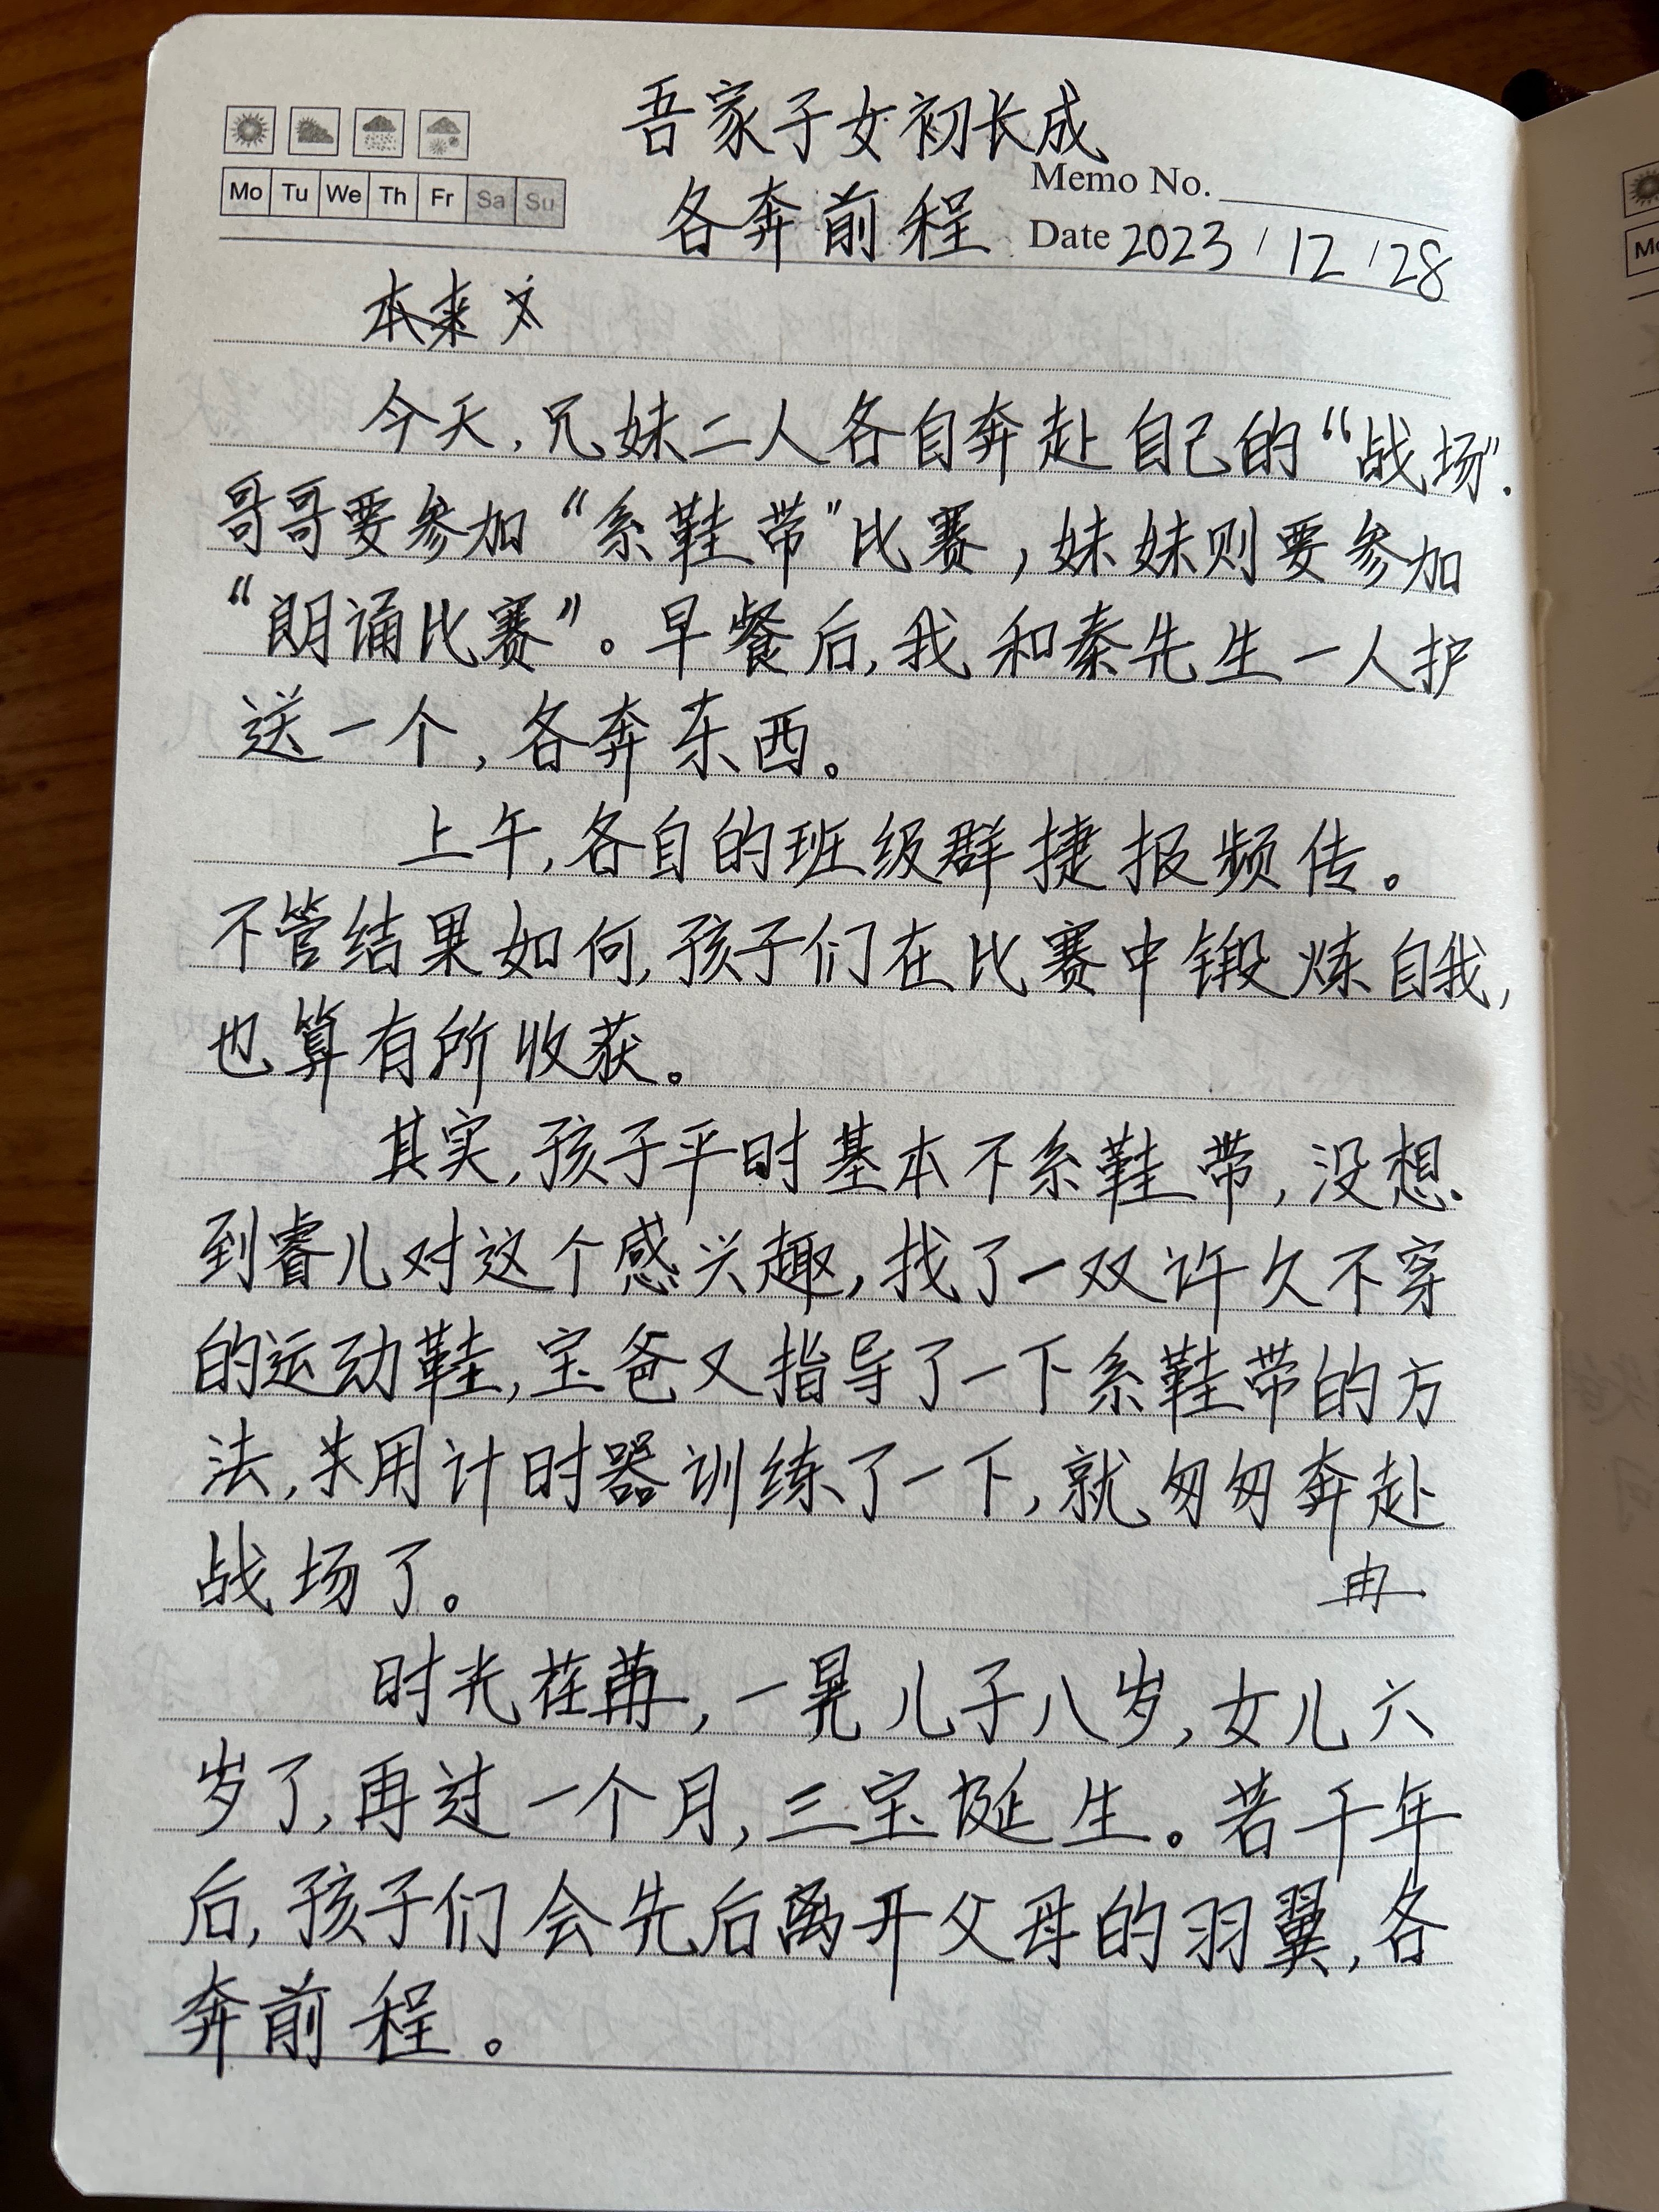 吾家子女初长成
Memo No.
Mo Tu We Th Fr Sa Su
各奔前程
Date 2023/12/28
本来
今天,兄妹二人各自奔赴自己的“战场”.
哥哥要参加“系鞋带”比赛,妹妹则要参加
“朗诵比赛”。早餐后,我和秦先生一人护
送一个,各奔东西。
上午,各自的班级群捷报频传。
不管结果如何,孩子们在比赛中锻炼自我,
也算有所收获。
其实,孩子平时基本不系鞋带,没想
到睿儿对这个感兴趣,找了一双许久不穿
的运动鞋,宝爸又指导了一下系鞋带的方
法,用计时器训练了一下,就匆匆奔赴
战场了。
冉
时光荏苒,一晃儿子八岁,女儿六
岁了,再过一个月,三宝诞生。若干年
后,孩子们会先后离开父母的羽翼,各
奔前程。